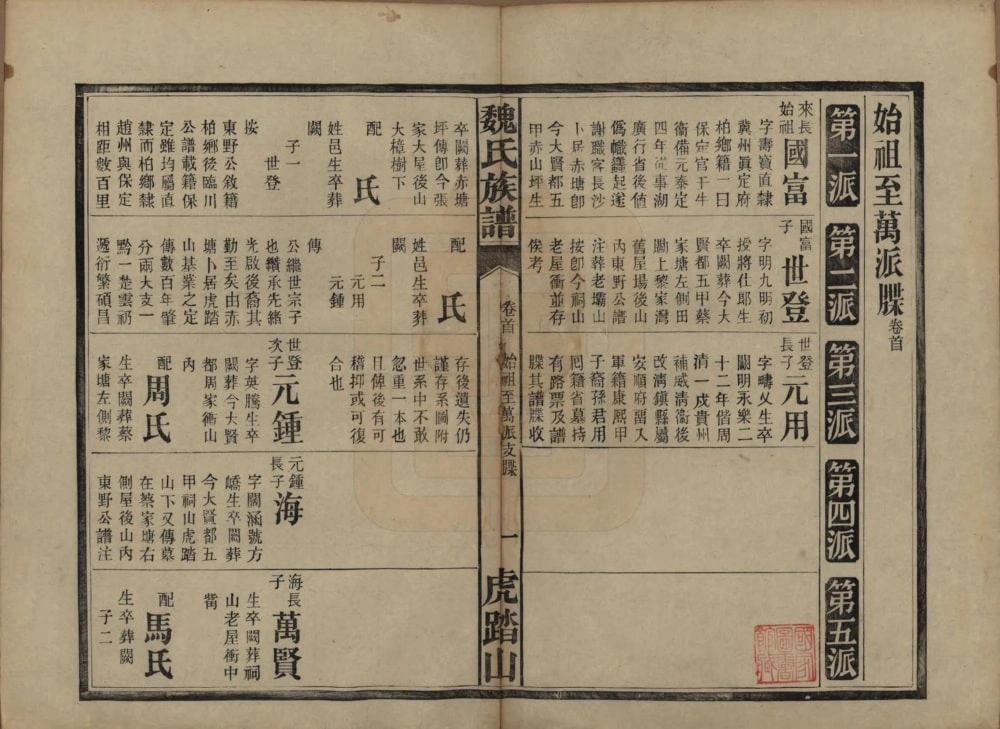 始祖至萬派牒卷首
第一派
第二派
第三派
第四派
第五派
來長始祖
國富
字壽寶直隸
冀州眞定府
柏鄉籍一曰
保定官千牛
衞備元泰定
四年從事湖
廣行省後値
僞幟纆起遂
謝職客長沙
卜居赤塘卽
今大賢都五
甲赤山坪生
卒闕葬赤塘
坪傳卽今張
家大屋後山
大樟樹下
配
氏
姓邑生卒葬
闕
子一
世登
按
東野公敘籍
柏鄉後臨川
公譜載籍保
定雖均屬直
隸而柏鄉隸
趙州與保定
相距數百里
國富子
世登
字明九明初
授將仕郎生
卒闕葬今大
賢都五甲蔡
家塘左側田
㘭上黎家灣
屋場後山
內東野公譜
注葬老壩山
按卽今祠山
老屋衝並存
俟考
配
氏
姓邑生卒葬
闕
子二
元用
元鍾
傳
公繼世宗子
也纘承先緒
光啟後裔其
勤至矣由赤
塘卜居虎踏
山基業之定
傳數百年肇
分兩大支一
黔一楚雲礽
遞衍繁碩昌
世登長子
元用
字疇乂生卒
闕明永樂二
十二年偕周
清一戍貴州
補威清衞後
改清鎮縣屬
安順府嗣入
軍籍康熙甲
子裔孫君用
囘籍省墓持
有路票及譜
牒其譜牒收
存後遺失仍
謹存系圖附
世系中不敢
忽重一本也
且俾後有可
稽抑或可復
合也
世登次子
元鍾
字英騰生卒
闕葬今大賢
都周家衝山
內
配
周氏
生卒闕葬蔡
家塘左側黎
元鍾長子
海
字闊涵號方
嶠生卒闕葬
今大賢都五
甲祠山虎踏
山下又傳墓
在蔡家塘右
側屋後山內
東野公譜注
海長子
萬賢
生卒闕葬祠
山老屋衝中
嘴
配
馬氏
生卒葬闕
子二
魏氏族譜
卷首
始祖至萬派支牒
一
虎踏山